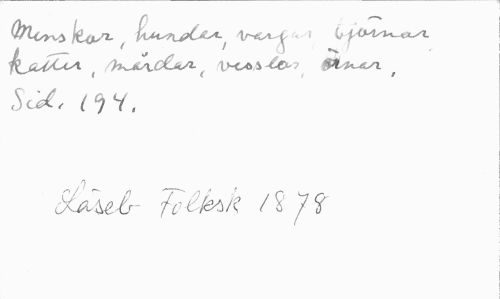 Menskor, hundar, vargar, björnar
katter, mårdar, vesslor, örnar.
Sid. 194.
Läseb Folksk 1878